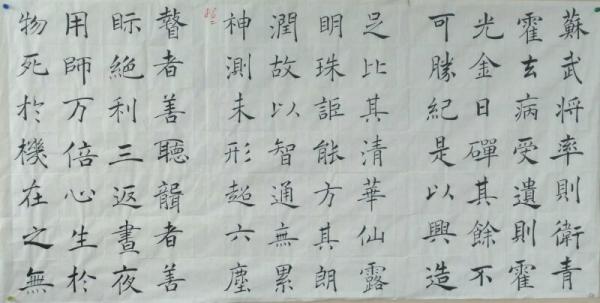 蘇武将率則衛青
霍去病受遺則霍
光金日磾其餘不
可勝紀是以興造
足比其清華仙露
明珠詎能方其朗
潤故以智通無累
神測未形超六塵
瞽者善聽聾者善
眎絕利三返晝夜
用師万倍心生於
物死於機在之無